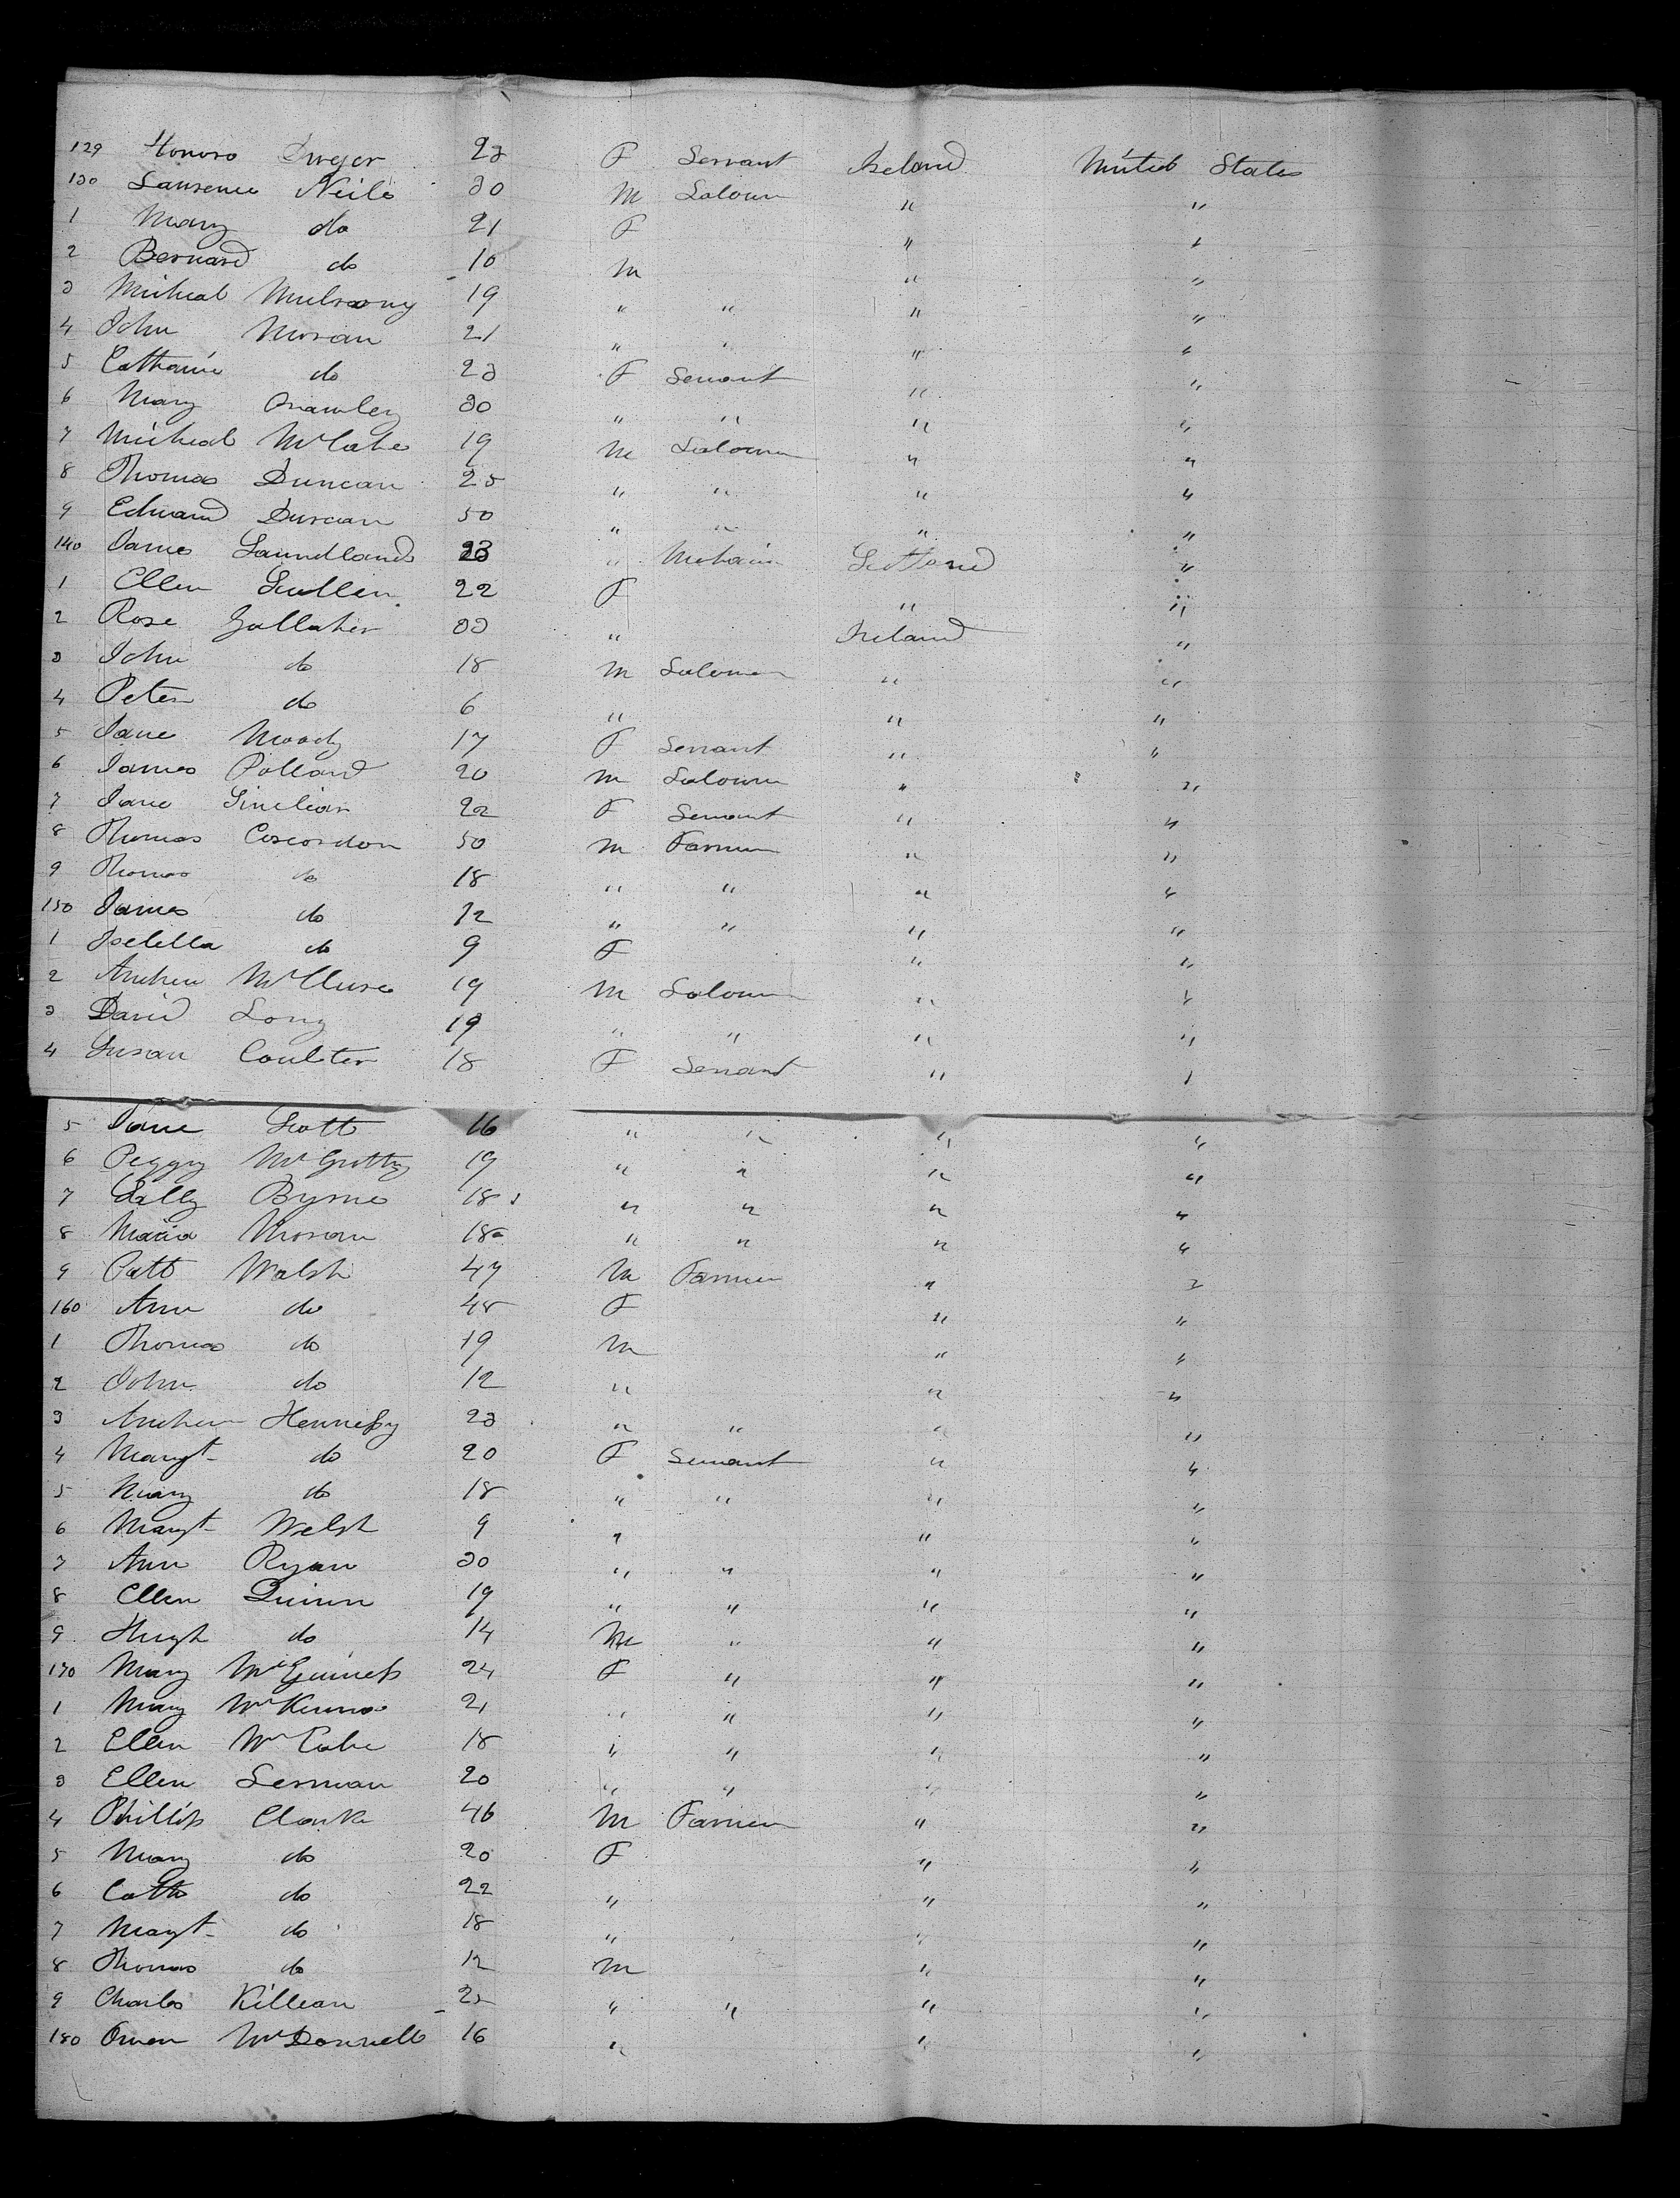 129 Honora Dwyer 23 F Servant Ireland United States
130 Laurence Neile 30 M Labourer " "
1 Mary do 21 F " "
2 Bernard do 10 M " "
3 Micheal Mulroony 19 " " " "
4 John Moran 21 " " " "
5 Catharine do 23 F Servant " "
6 Mary 30 " " " "
7 Micheal McCabe 19 M Labourer " "
8 Thomas Duncan 25 " " " "
9 Edward Duncan 50 " " " "
140 James " Scotland "
1 Ellen Scullen 22 F " "
2 Rose Gallaher 33 " Ireland "
3 John do 18 M Labourer " "
4 Peter do 6 " " "
5 Jane Moody 17 F Servant " "
6 James Pollard 20 M Labourer " "
7 Jane 22 F Servant " "
8 Thomas 50 M Farmer " "
9 Thomas do 18 " " " "
150 James do 12 " " " "
1 Isebella do 9 F " "
2 Andrew McClure 19 M Labourer " "
3 David Long 19 " " " "
4 Susan Coulter 18 F Servant " "
5 Jane Scott 16 " " " "
6 Peggy McGrotty 19 " " " "
7 Byrne 18 " " " "
8 Maria Moran 18 " " " "
9 Patt Walsh 47 M Farmer " "
160 Ann do 45 F " "
1 Thomas do 19 M " "
2 John do 12 " " "
3 Andrew Hennessy 23 " " " "
4 Margt do 20 F Servant " "
5 Mary do 18 " " " "
6 Margt Welsh 9 " " "
7 Ann Ryan 30 " " " "
8 Ellen Quinn 19 " " " "
9 Hugh do 14 M " " "
170 Mary McGuiness 24 F " " "
1 Mary McKenna 21 " " " "
2 Ellen McCabe 18 " " " "
3 Ellen 20 " " " "
4 Phillip Clarke 46 M Farmer " "
5 Mary do 20 F " "
6 Cath do 22 " " "
7 Margt do 18 " " "
8 Thomas do 12 M " "
9 Charles Killean 25 " " " "
180 Owen McDonnell 16 " " "